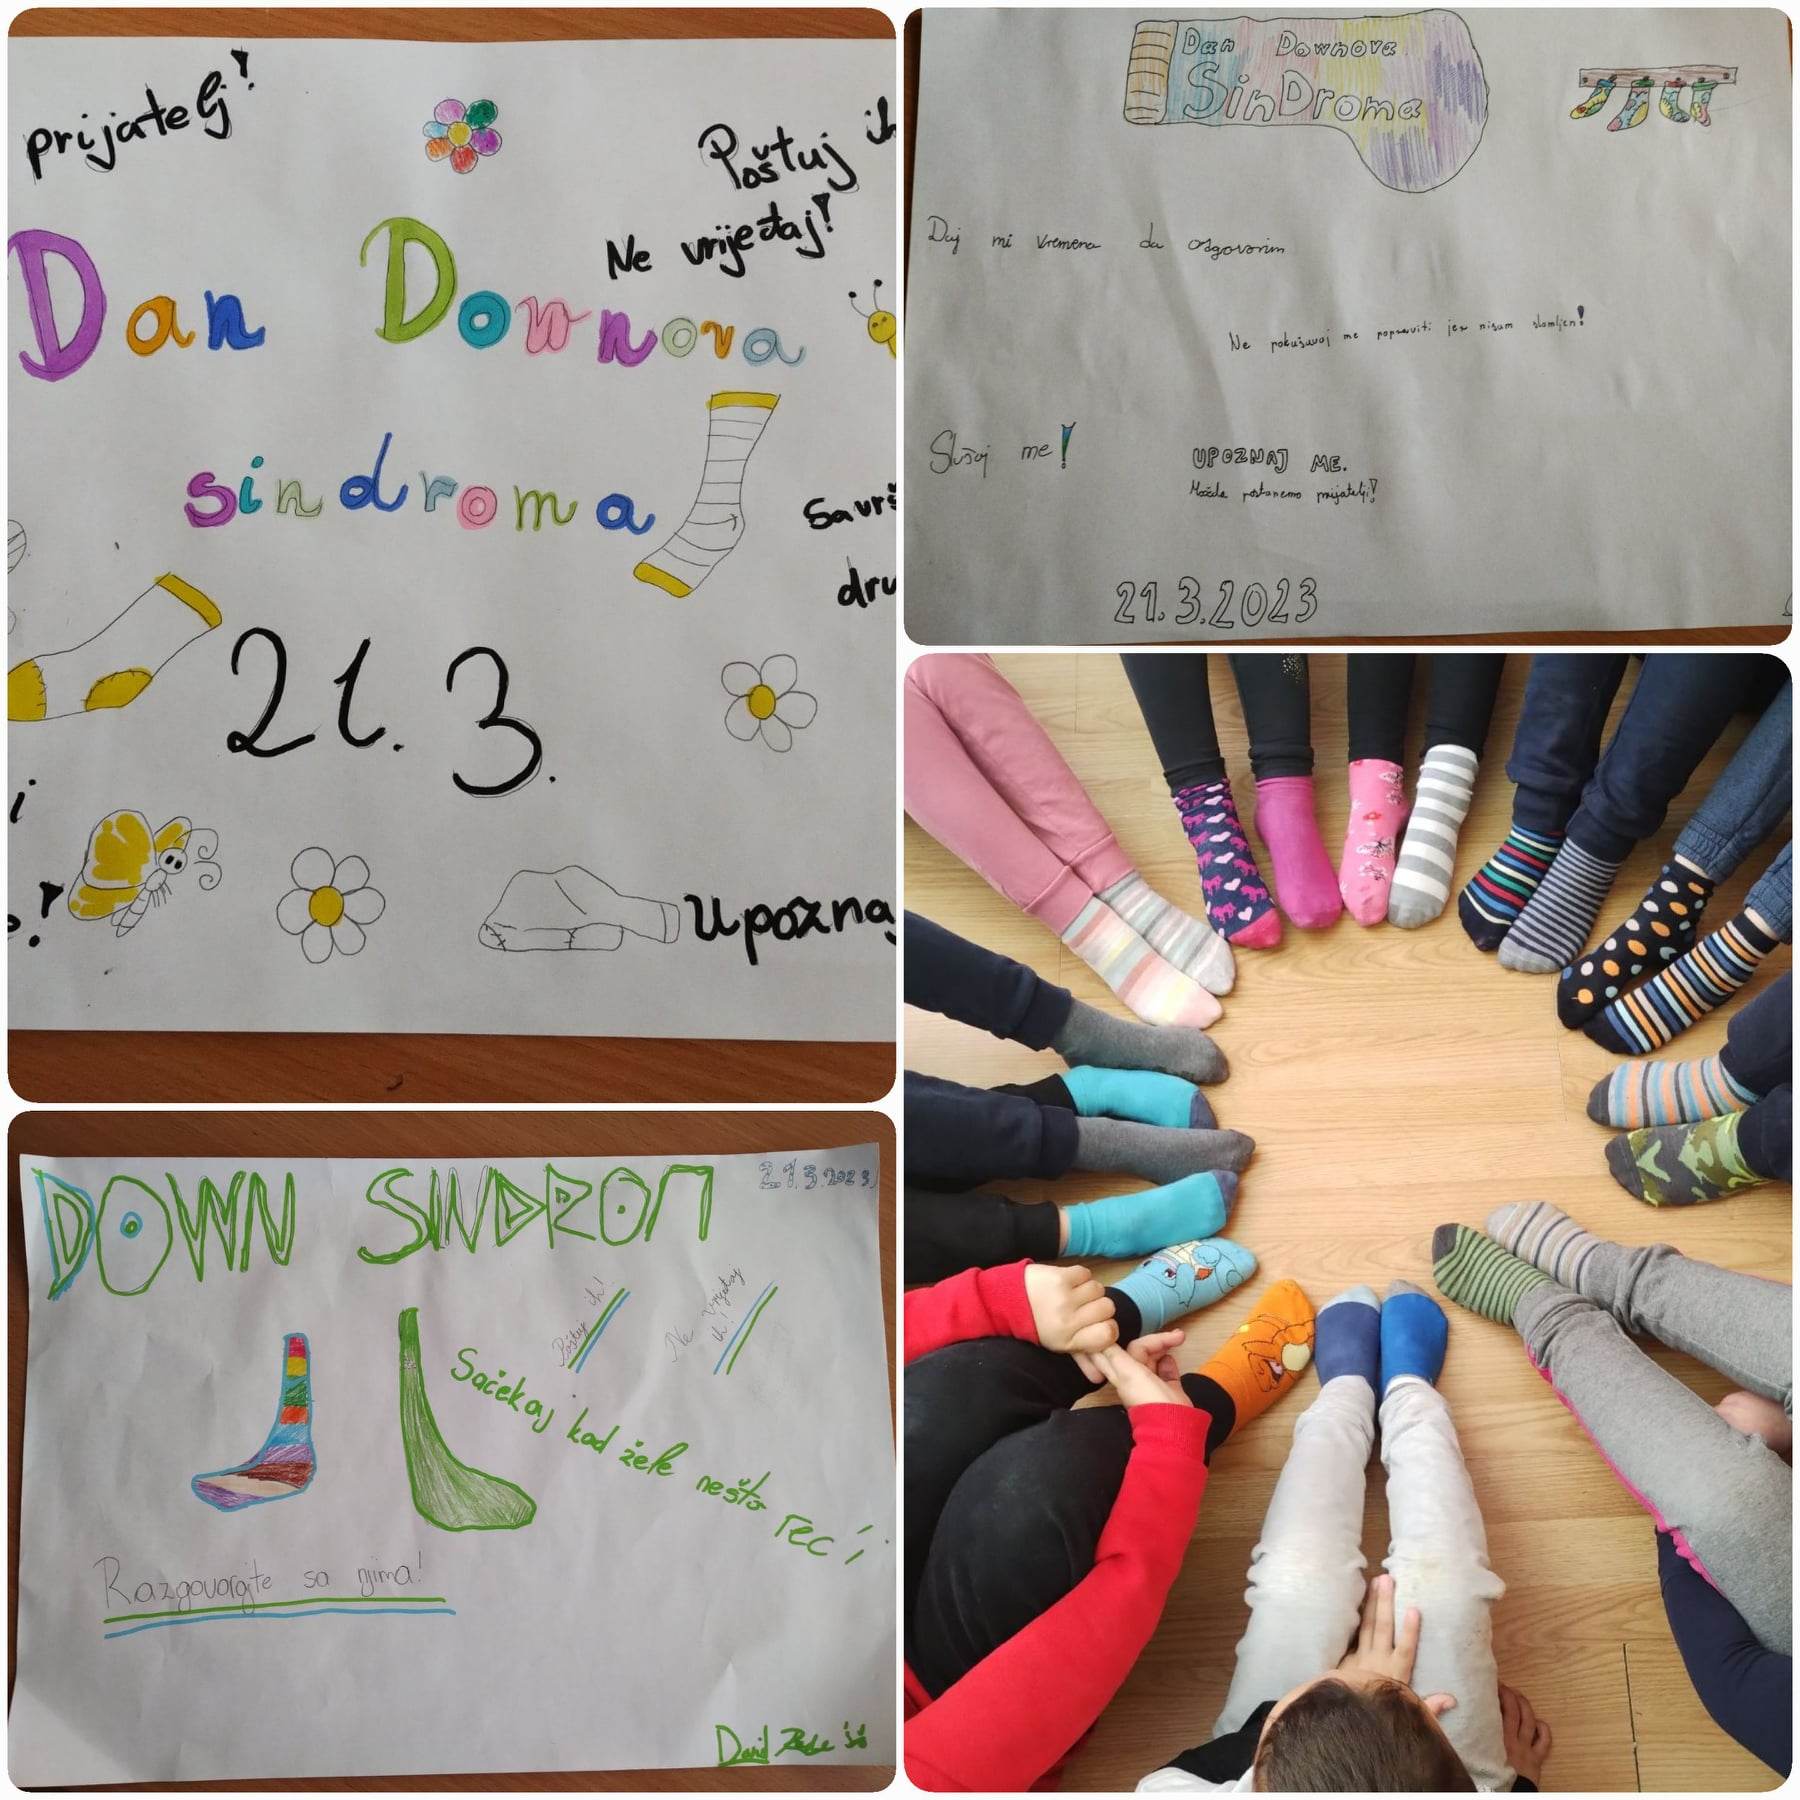 prijatelj!
Poštuj ih
Ne vrijeđaj!
Dan Downova
sindroma
Savrš
dru
21. 3.
i
o!
Upoznaj
Dan Downova
SinDroma
Daj mi vremena da odgovorim
Ne pokušavaj me popraviti jer nisam slomljen!
Slušaj me!
UPOZNAJ ME.
Možda postanemo prijatelji!
21.3.2023
DOWN SINDROM
21.3.2023.
Poštuj ih!
Ne vrijeđaj
ih!
Sačekaj kad žele nešto reći
Razgovarajte sa njima!
David